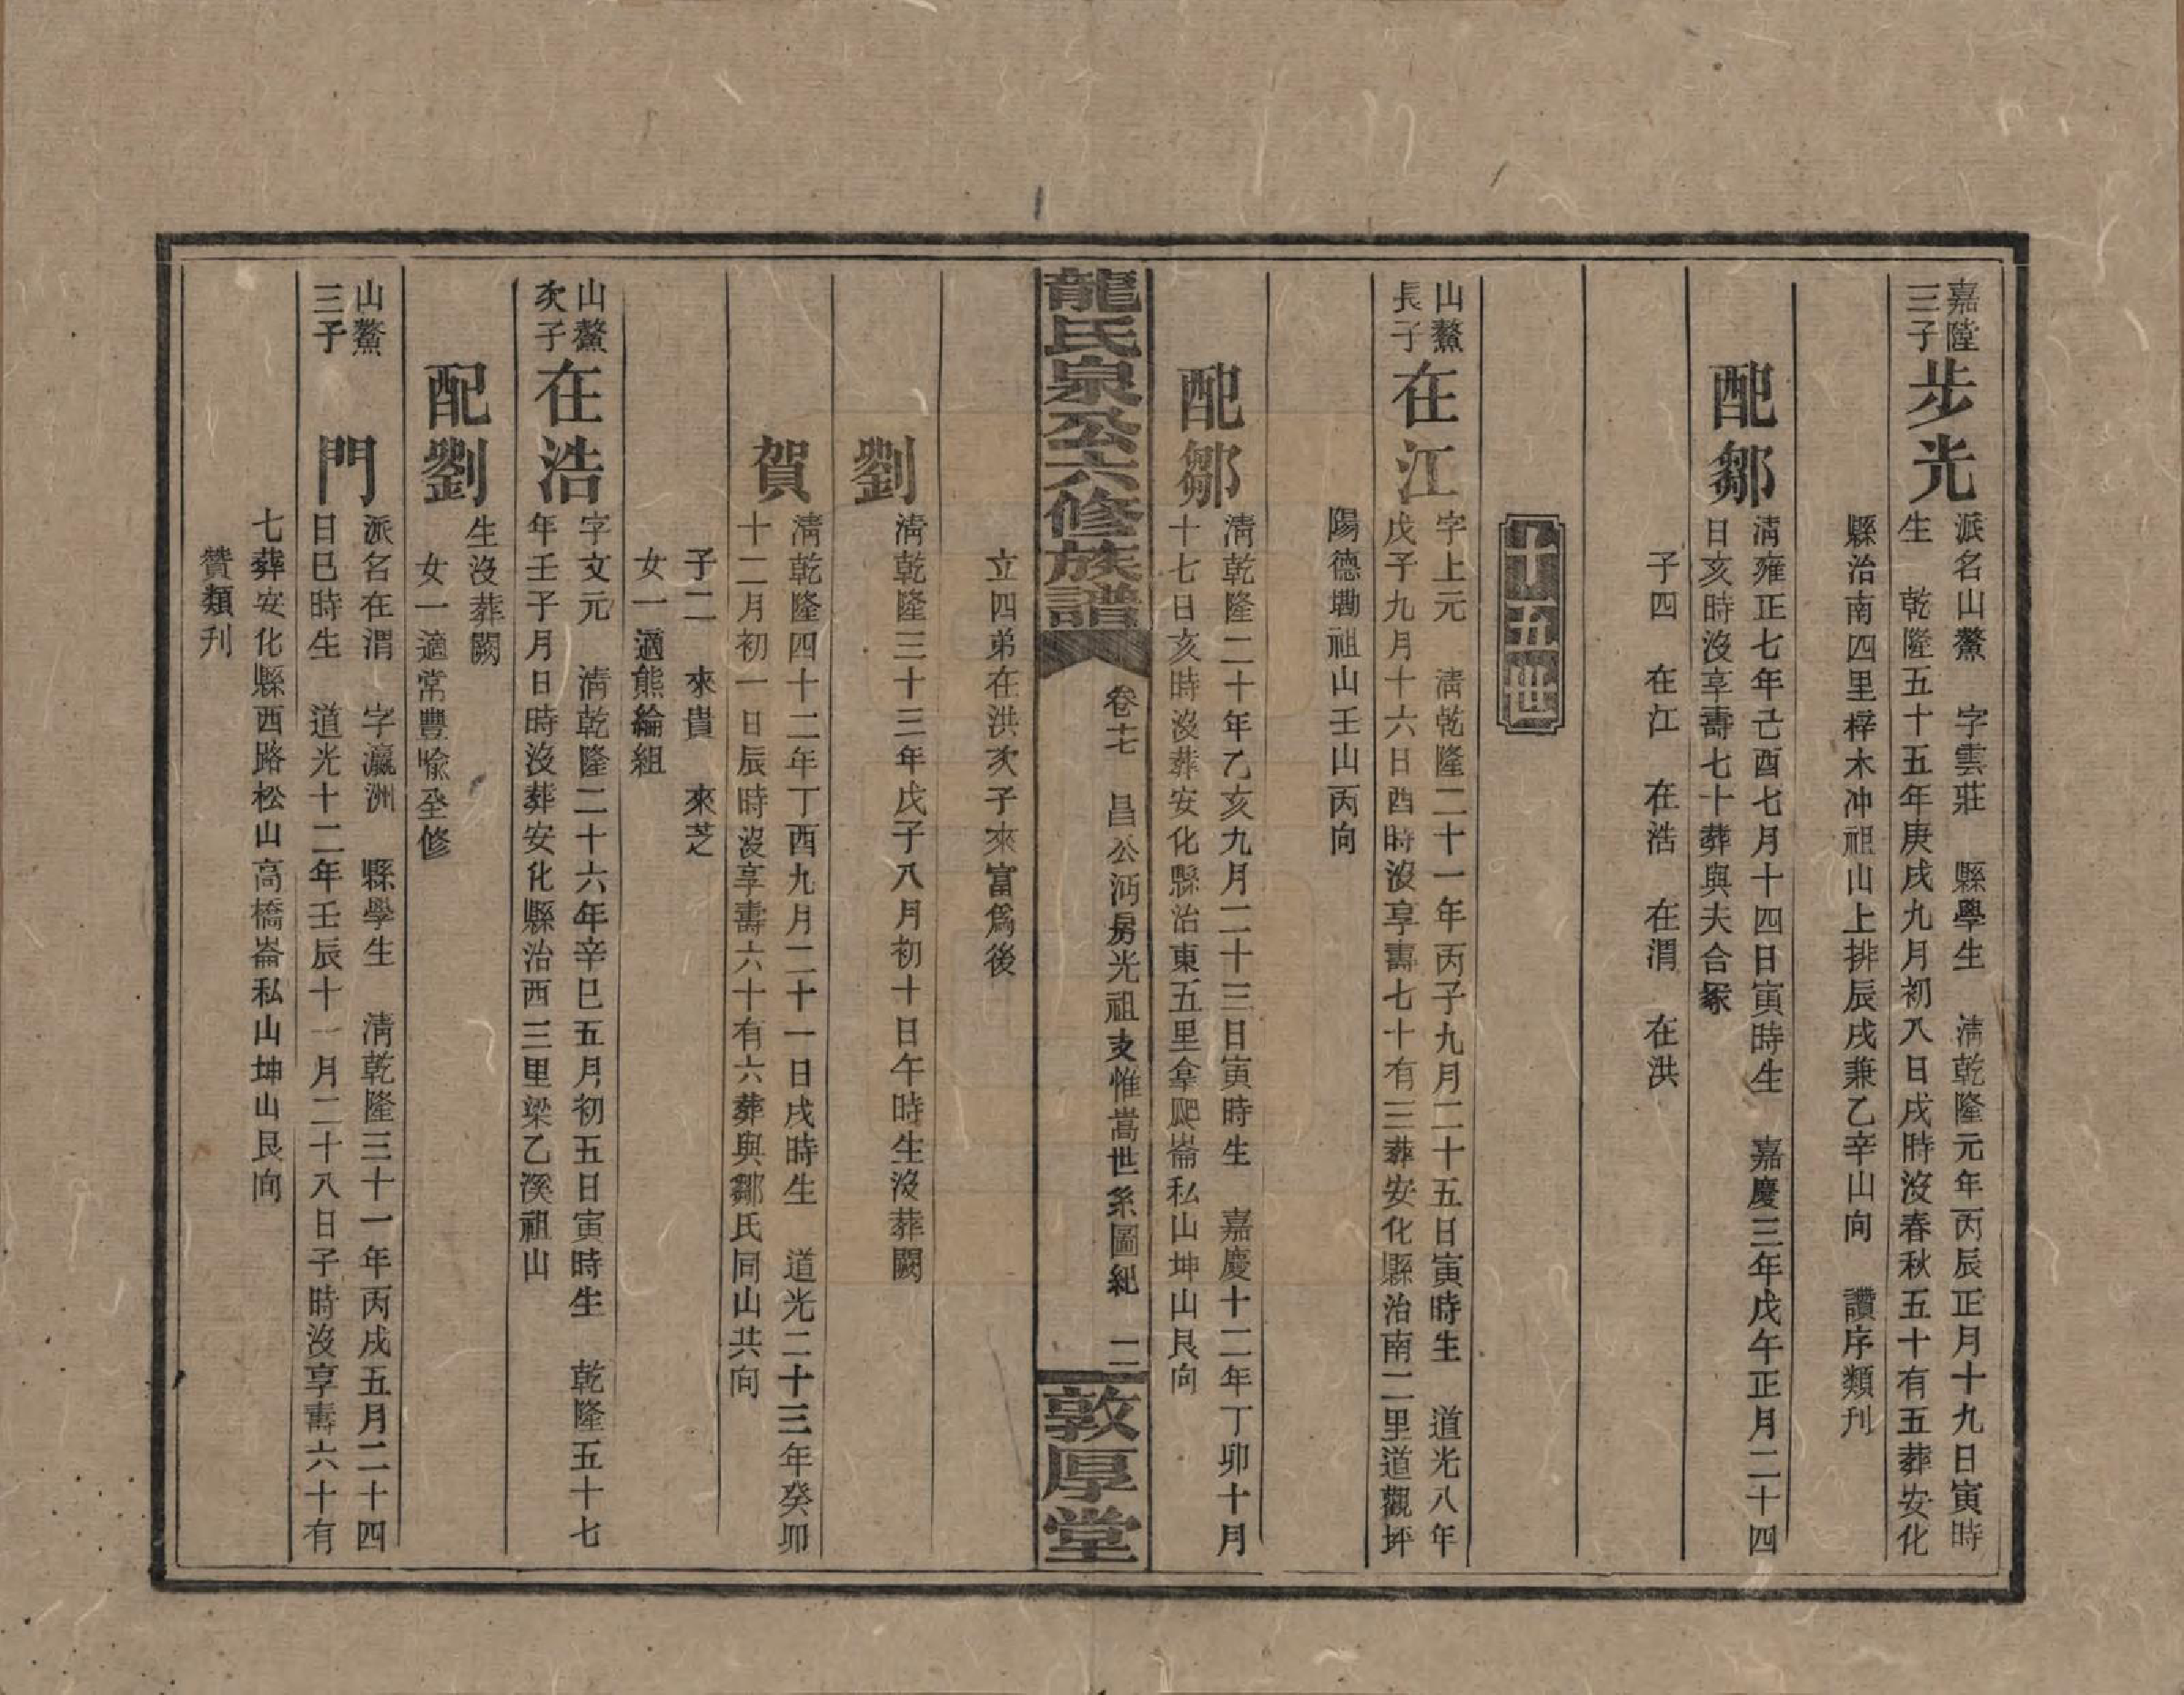 嘉陞
三子
步光
派名山鰲　字雲莊　縣學生　清乾隆元年丙辰正月十九日寅時
生　乾隆五十五年庚戌九月初八日戌時沒春秋五十有五葬安化
縣治南四里梓木冲祖山上排辰戌兼乙辛山向　讚序類刋
配鄒
清雍正七年己酉七月十四日寅時生　嘉慶三年戊午正月二十四
日亥時沒享壽七十葬與夫合冡
子四　在江　在浩　在渭　在洪
十五世
山鰲
長子
在江
字上元　清乾隆二十一年丙子九月二十五日寅時生　道光八年
戊子九月十六日酉時沒享壽七十有三葬安化縣治南二里道觀坪
陽德墈祖山壬山丙向
配鄒
清乾隆二十年乙亥九月二十三日寅時生　嘉慶十二年丁卯十月
十七日亥時沒葬安化縣治東五里拿爬崙私山坤山艮向
龍氏泉公六修族譜
卷十七　昌公沔房光祖支惟嵩世系圖紀　二
敦厚堂
立四弟在洪次子來富爲後
劉
清乾隆三十三年戊子八月初十日午時生沒葬闕
賀
清乾隆四十二年丁酉九月二十一日戌時生　道光二十三年癸卯
十二月初一日辰時沒享壽六十有六葬與鄒氏同山共向
子二　來貴　來芝
女一適熊綸組
山鰲
次子
在浩
字文元　清乾隆二十六年辛巳五月初五日寅時生　乾隆五十七
年壬子月日時沒葬安化縣治西三里梁乙溪祖山
配劉
生沒葬闕
女一適常豐喻垒修
山鰲
三子
門
派名在渭　字瀛洲　縣學生　清乾隆三十一年丙戌五月二十四
日巳時生　道光十二年壬辰十一月二十八日子時沒享壽六十有
七葬安化縣西路松山高橋崙私山坤山艮向
贊類刋